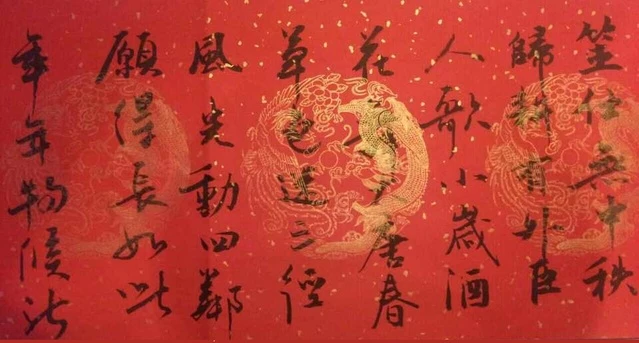 筮仕無中秩
歸耕有外臣
人歌小歲酒
花舞大唐春
草色迷三徑
風光動四鄰
願得長如此
年年物候新